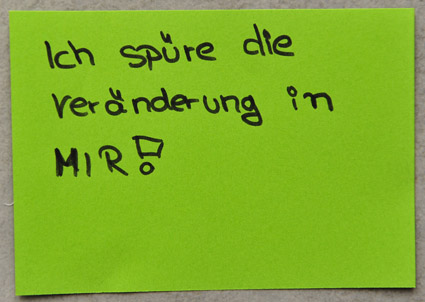 Ich spüre die
veränderung in
MIR!